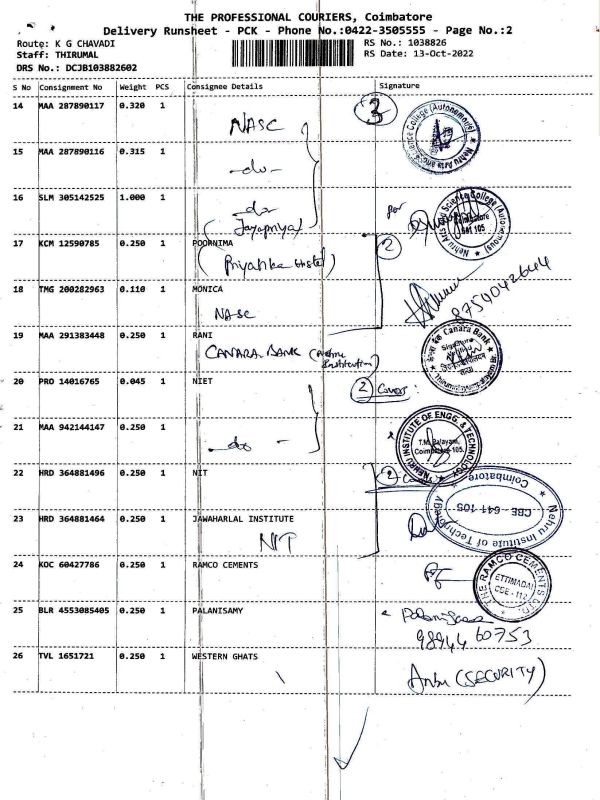 THE PROFESSIONAL COURIERS, Coimbatore
Delivery Runsheet - PCK - Phone No.:0422-3505555 - Page No.:2
Route: K G CHAVADI
RS No.: 1038826
Staff: THIRUMAL
RS Date: 13-Oct-2022
DRS No.: DCJB103882602
S No Consignment No Weight PCS Consignee Details Signature
14 MAA 287890117 0.320 1
NASC
3
15 MAA 287890116 0.315 1
-do-
16 SLM 305142525 1.000 1
-do-
for
(Jayapriya)
17 KCM 12590785 0.250 1 POORNIMA
2
(Priyanka Hostel)
18 TMG 200282963 0.110 1 MONICA
NASC
8750042644
19 MAA 291383448 0.250 1 RANI
CANARA BANK
Canara Bank
20 PRO 14016765 0.045 1 NIET
2 Cover
21 MAA 942144147 0.250 1
-do-
NEHRU INSTITUTE OF ENGG. & TECHNOLOGY
Coimbatore-105.
22 HRD 364881496 0.250 1 NIT
2
Nehru Institute of Technology
Coimbatore
CBE - 641 105
23 HRD 364881464 0.250 1 JAWAHARLAL INSTITUTE
NIT
24 KOC 60427786 0.250 1 RAMCO CEMENTS
THE RAMCO CEMENTS LTD.
ETTIMADAI
CBE - 112
25 BLR 4553085405 0.250 1 PALANISAMY
98944 60753
26 TVL 1651721 0.250 1 WESTERN GHATS
Anbu (SECURITY)